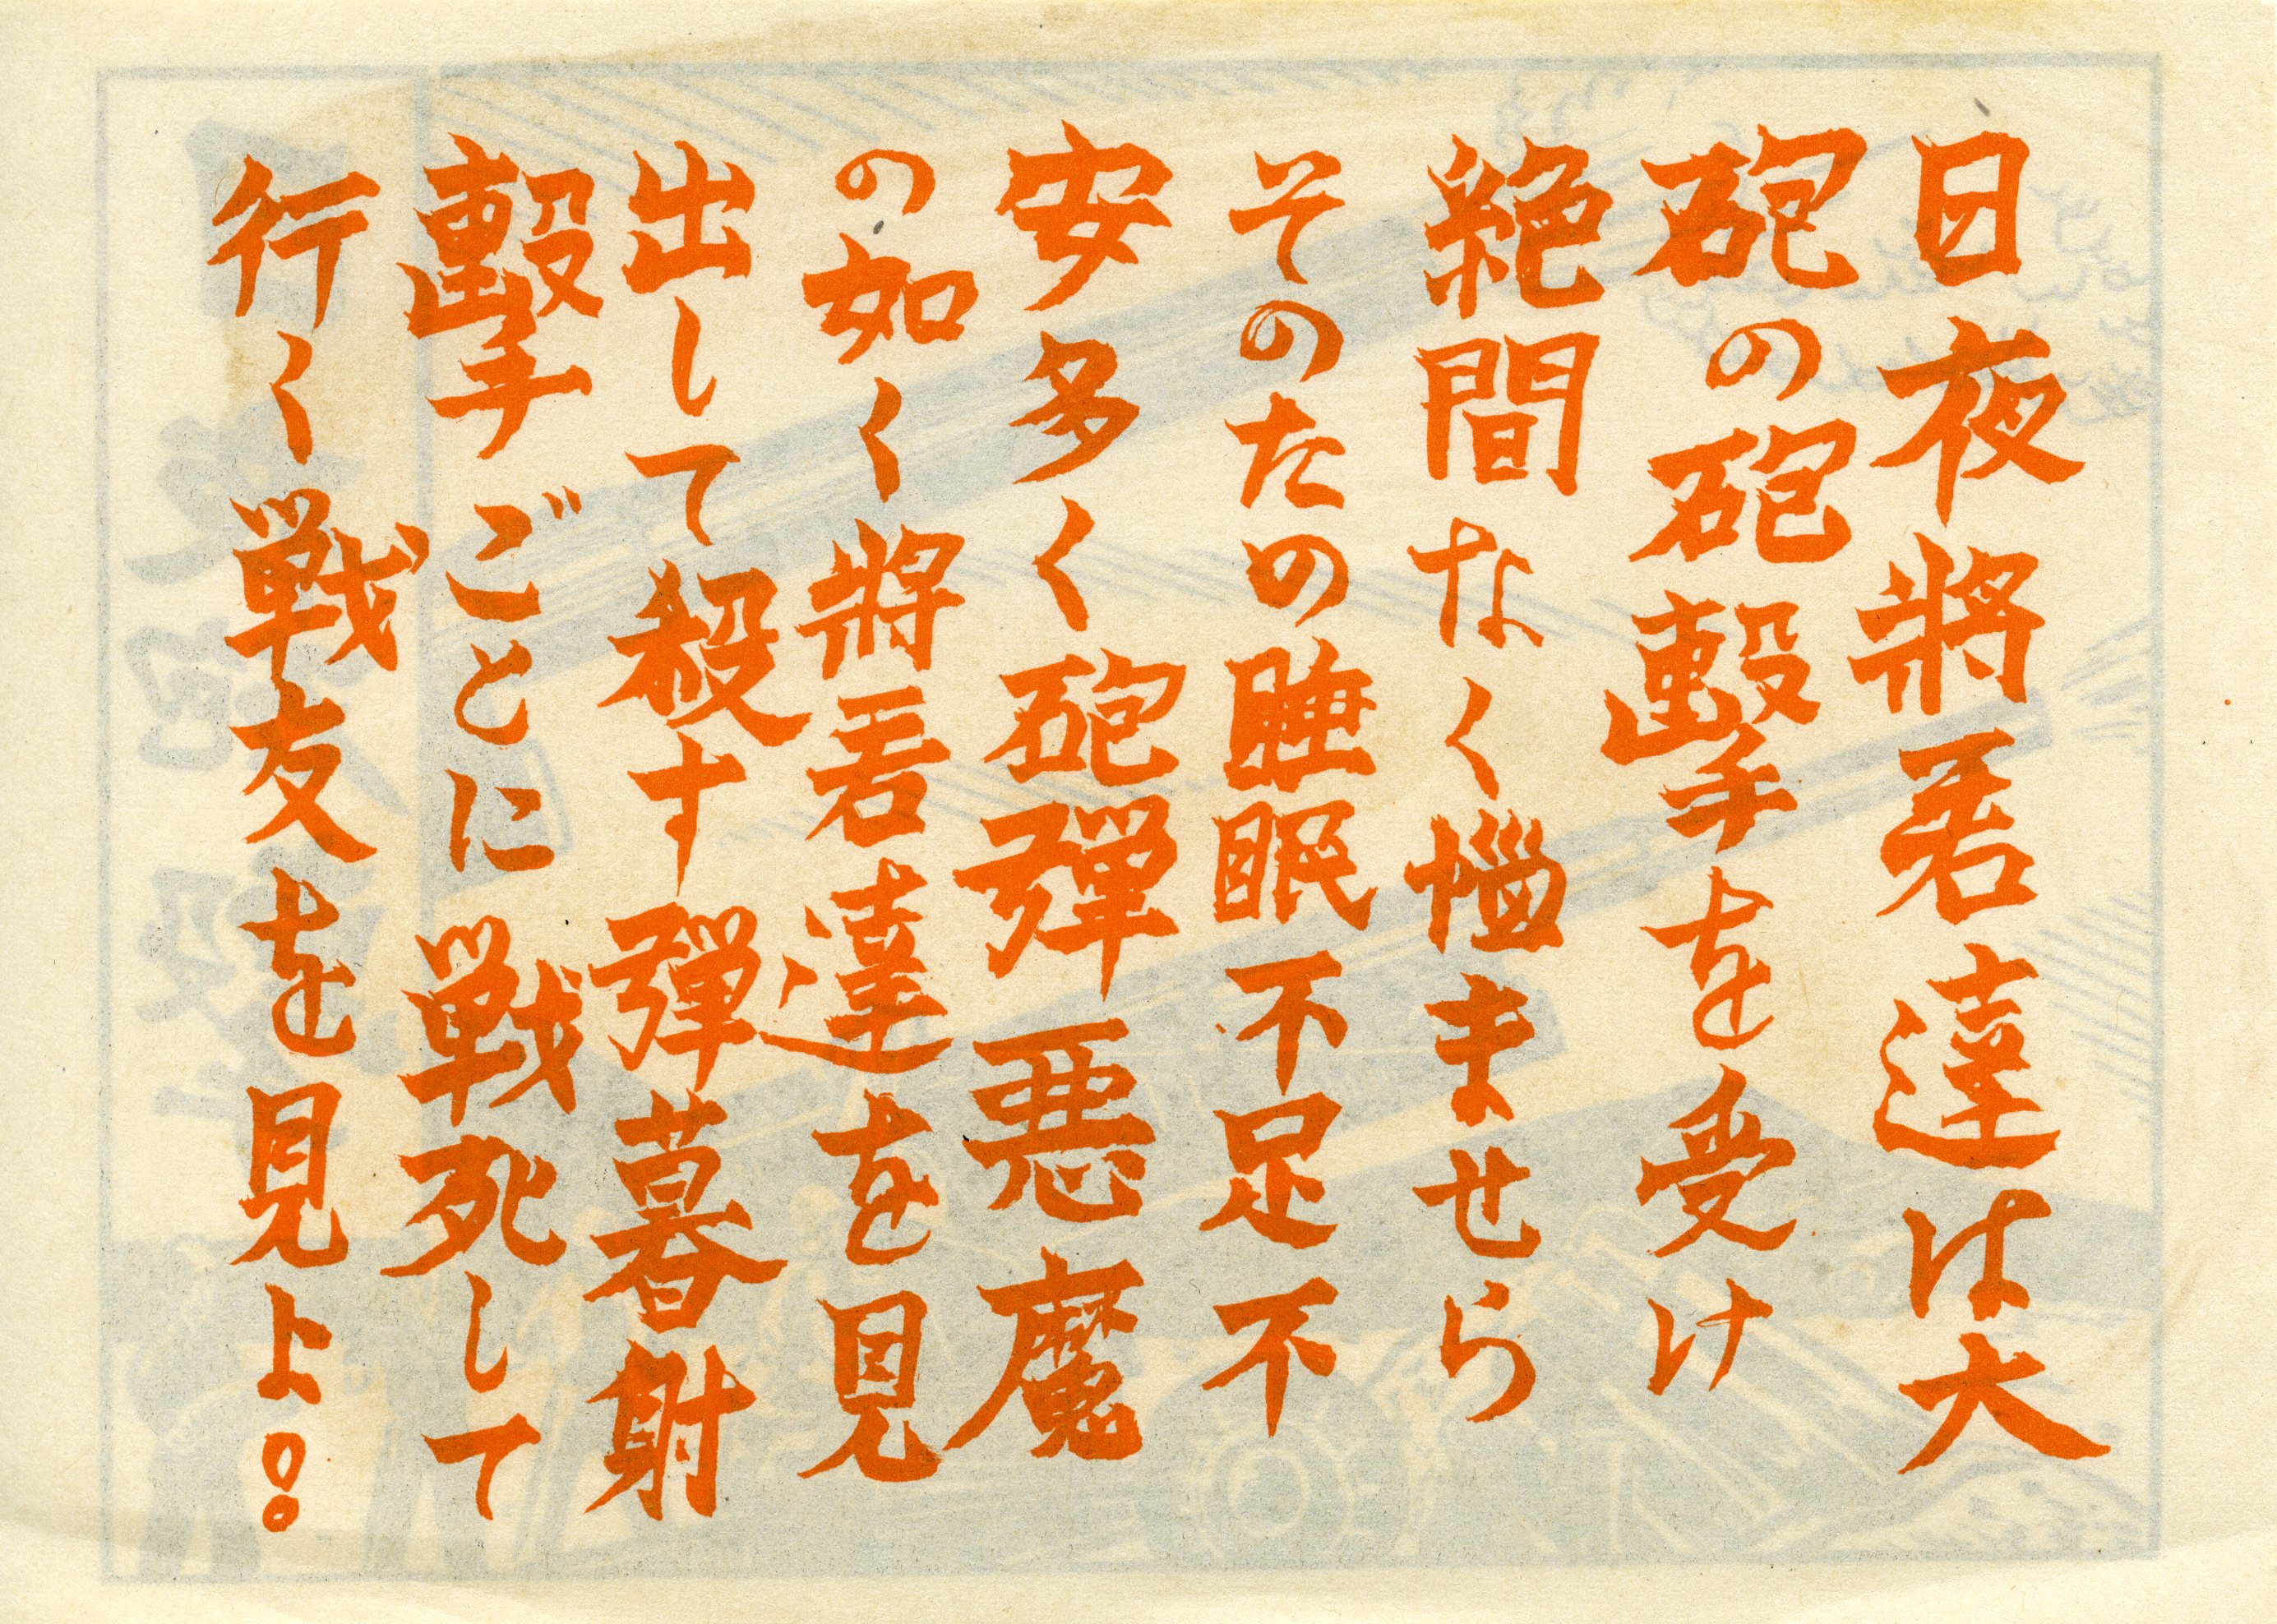 日夜將君達は大
砲の砲擊を受け
絶間なく惱ませら
そのための睡眠不足不
安多く砲彈悪魔
の如く將君達を見
出して殺す彈暮射
擊ごとに戦死して
行く戦友を見よ。。